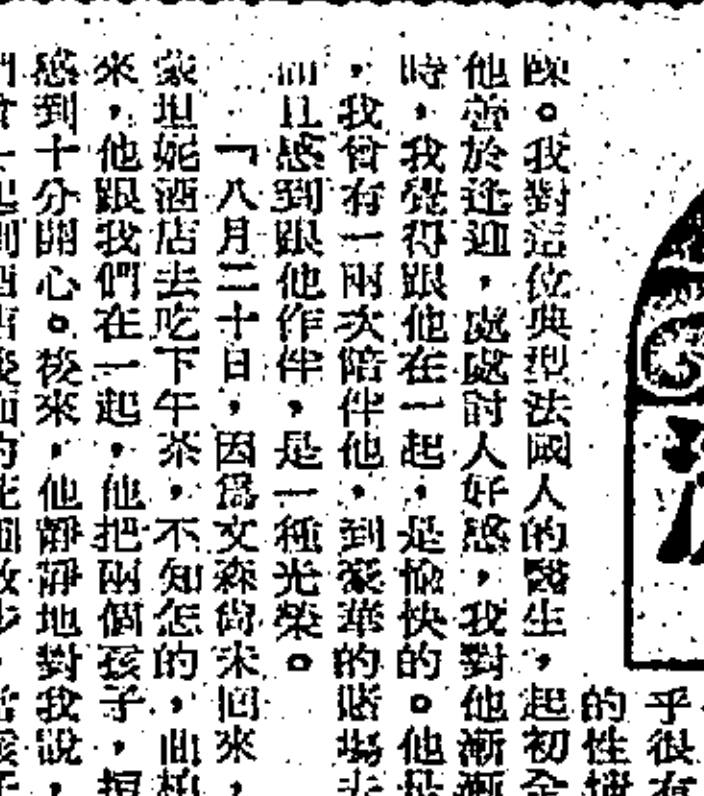 乎很有
的性
。我對這位典型法國人的醫生，起初全
他善於逢迎，處處討人好感，我對他漸漸
時，我覺得跟他在一起，是愉快的。他是
，我曾有一兩次陪伴他，到豪華的賭場去
而且感到跟他作伴，是一種光榮。
「八月二十日，因爲文森尚未回來，
蒙坦妮酒店去吃下午茶，不知怎的，曲柏
來，他跟我們在一起，他把兩個孩子，
感到十分開心。後來，他靜靜地對我說，
們會一起到酒店後面的花園散步，當孩子